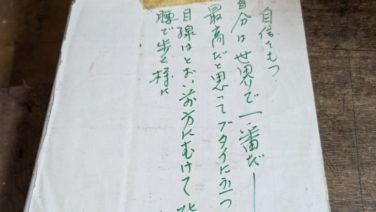 自信をもつ
自分は世界で一番だ―
最高だと思ってブタイに立つ
目線はとおい前方にむけて
腰で歩く様に